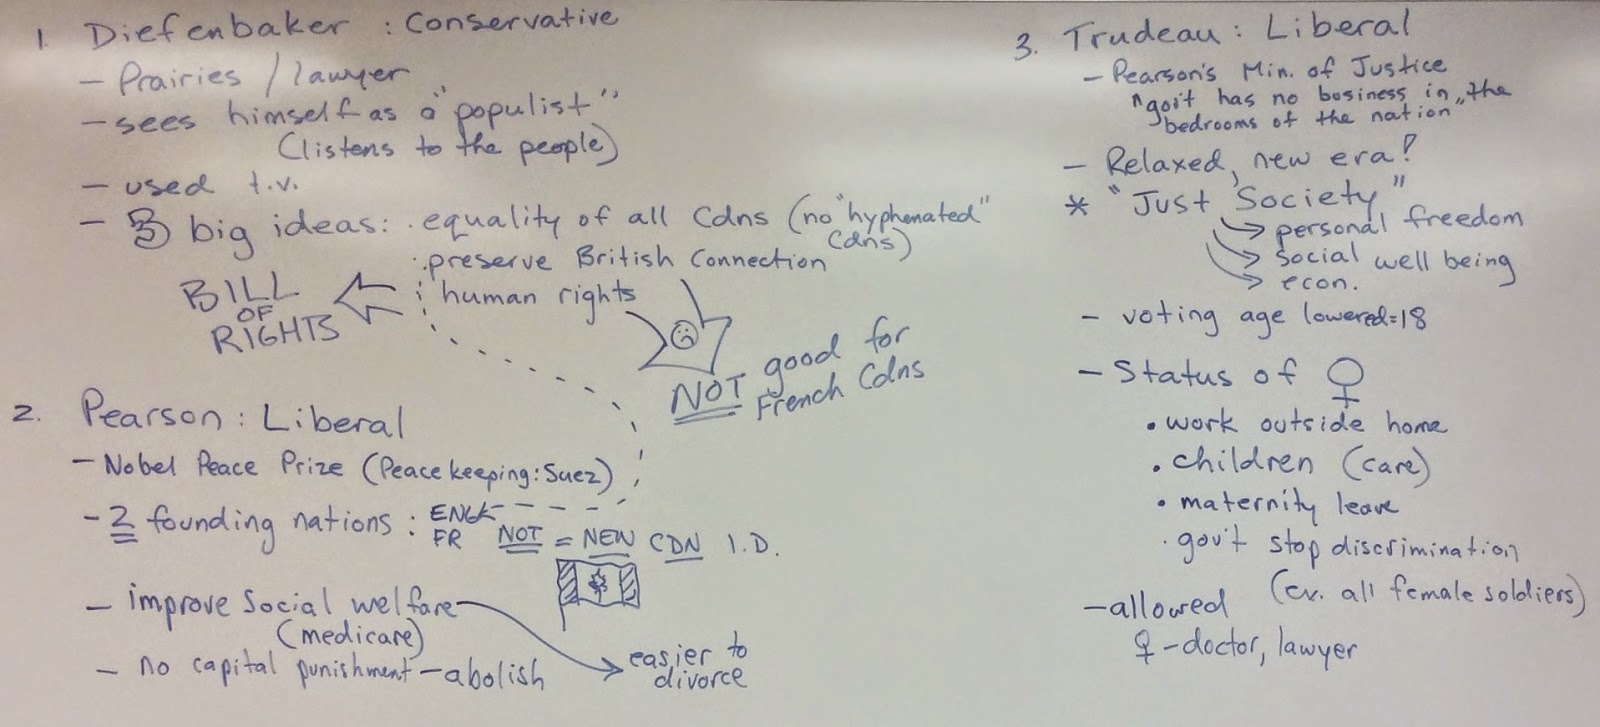 1. Diefenbaker : Conservative
- Prairies / lawyer
- sees himself as a "populist"
(listens to the people)
- used t.v.
- 3 big ideas: · equality of all Cdns (no "hyphenated"
Cdns)
· preserve British Connection
· human rights
BILL
OF
RIGHTS
NOT good for
French Cdns
2. Pearson : Liberal
- Nobel Peace Prize (Peacekeeping: Suez)
- 2 founding nations : ENG
FR NOT = NEW CDN I.D.
- improve social welfare
(medicare)
- no capital punishment - abolish
easier to
divorce
3. Trudeau : Liberal
- Pearson's Min. of Justice
"gov't has no business in the
bedrooms of the nation"
- Relaxed, new era!
* "Just Society"
personal freedom
social well being
econ.
- voting age lowered = 18
- Status of ♀
• work outside home
• children (care)
• maternity leave
· gov't stop discrimination
(ex. all female soldiers)
- allowed
♀ - doctor, lawyer